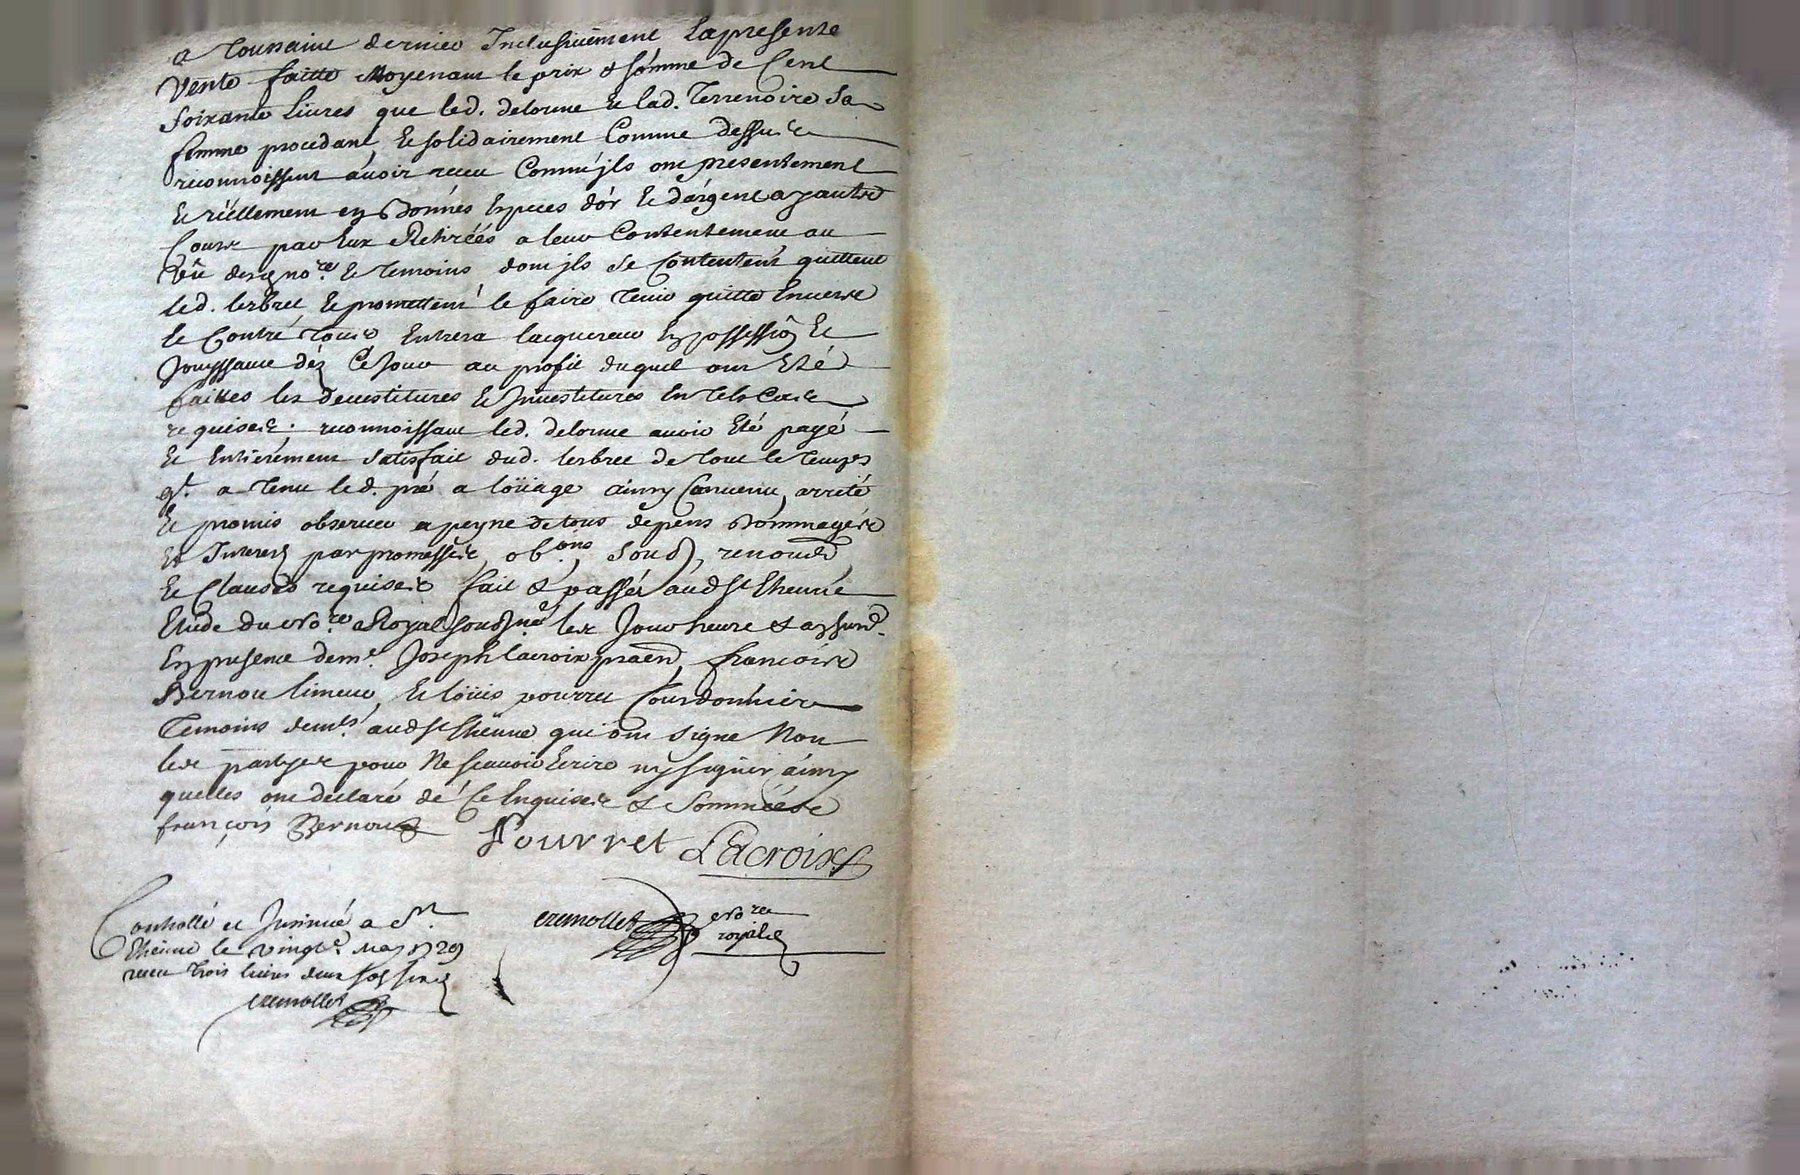 a Toussaint dernier Inclusivement La presente
Vente faitte Moyenant le prix & somme de Cent
soixante Livres que led. delorme Et lad. Terrenoire Sa
femme procedant Et solidairement Comme dessus
reconnoissent avoir receu Comme jls ont presentement
Et réellement en Bonnés Especes d'or Et d'argent ayant
Cours par Eux Retirées a leur Contentement au
veu desd no.re Et temoins dont jls se contentent quittent
led. lerbret Et promettent le faire tenir quitte Envers
Et Contre Tous Entrera lacquereur En possession Et
Jouyssance dés Ce Jour au profit duquel ont Eté
faittes les devestitures Et Jnvestitures En Tels Cas
requises. reconnoissant led. delorme avoir Eté payé
Et Entierement satisfait dud. lerbret de tout le temps
q.l a tenu led. pré a loüage ainsy Convenu, arreté
Et promis observer a peyne de tous depens Dommages
Et Interests par promesses, ob.ons, soub, renond
Et Clauses requises fait & passé aud St Etienne
Etude du No.re Royal soubs.né les Jour heure & an susd.
En presence de m.e Joseph Lacroix praen, françois
Bernou limeur Et loüis pourret Courdonnier
Temoins dem.ts aud St Etienne qui ont signé Non
les partyes pour Ne sçavoir Ecrire ny signer ainsy
quelles ont declaré de Ce Enquises & Sommées
françois Bernou Pourret Lacroix
Controllé et Jnsinué a St.
Etienne le vingt May 1729
receu trois livres deux sols six d
cremollet
cremollet No.re
royal